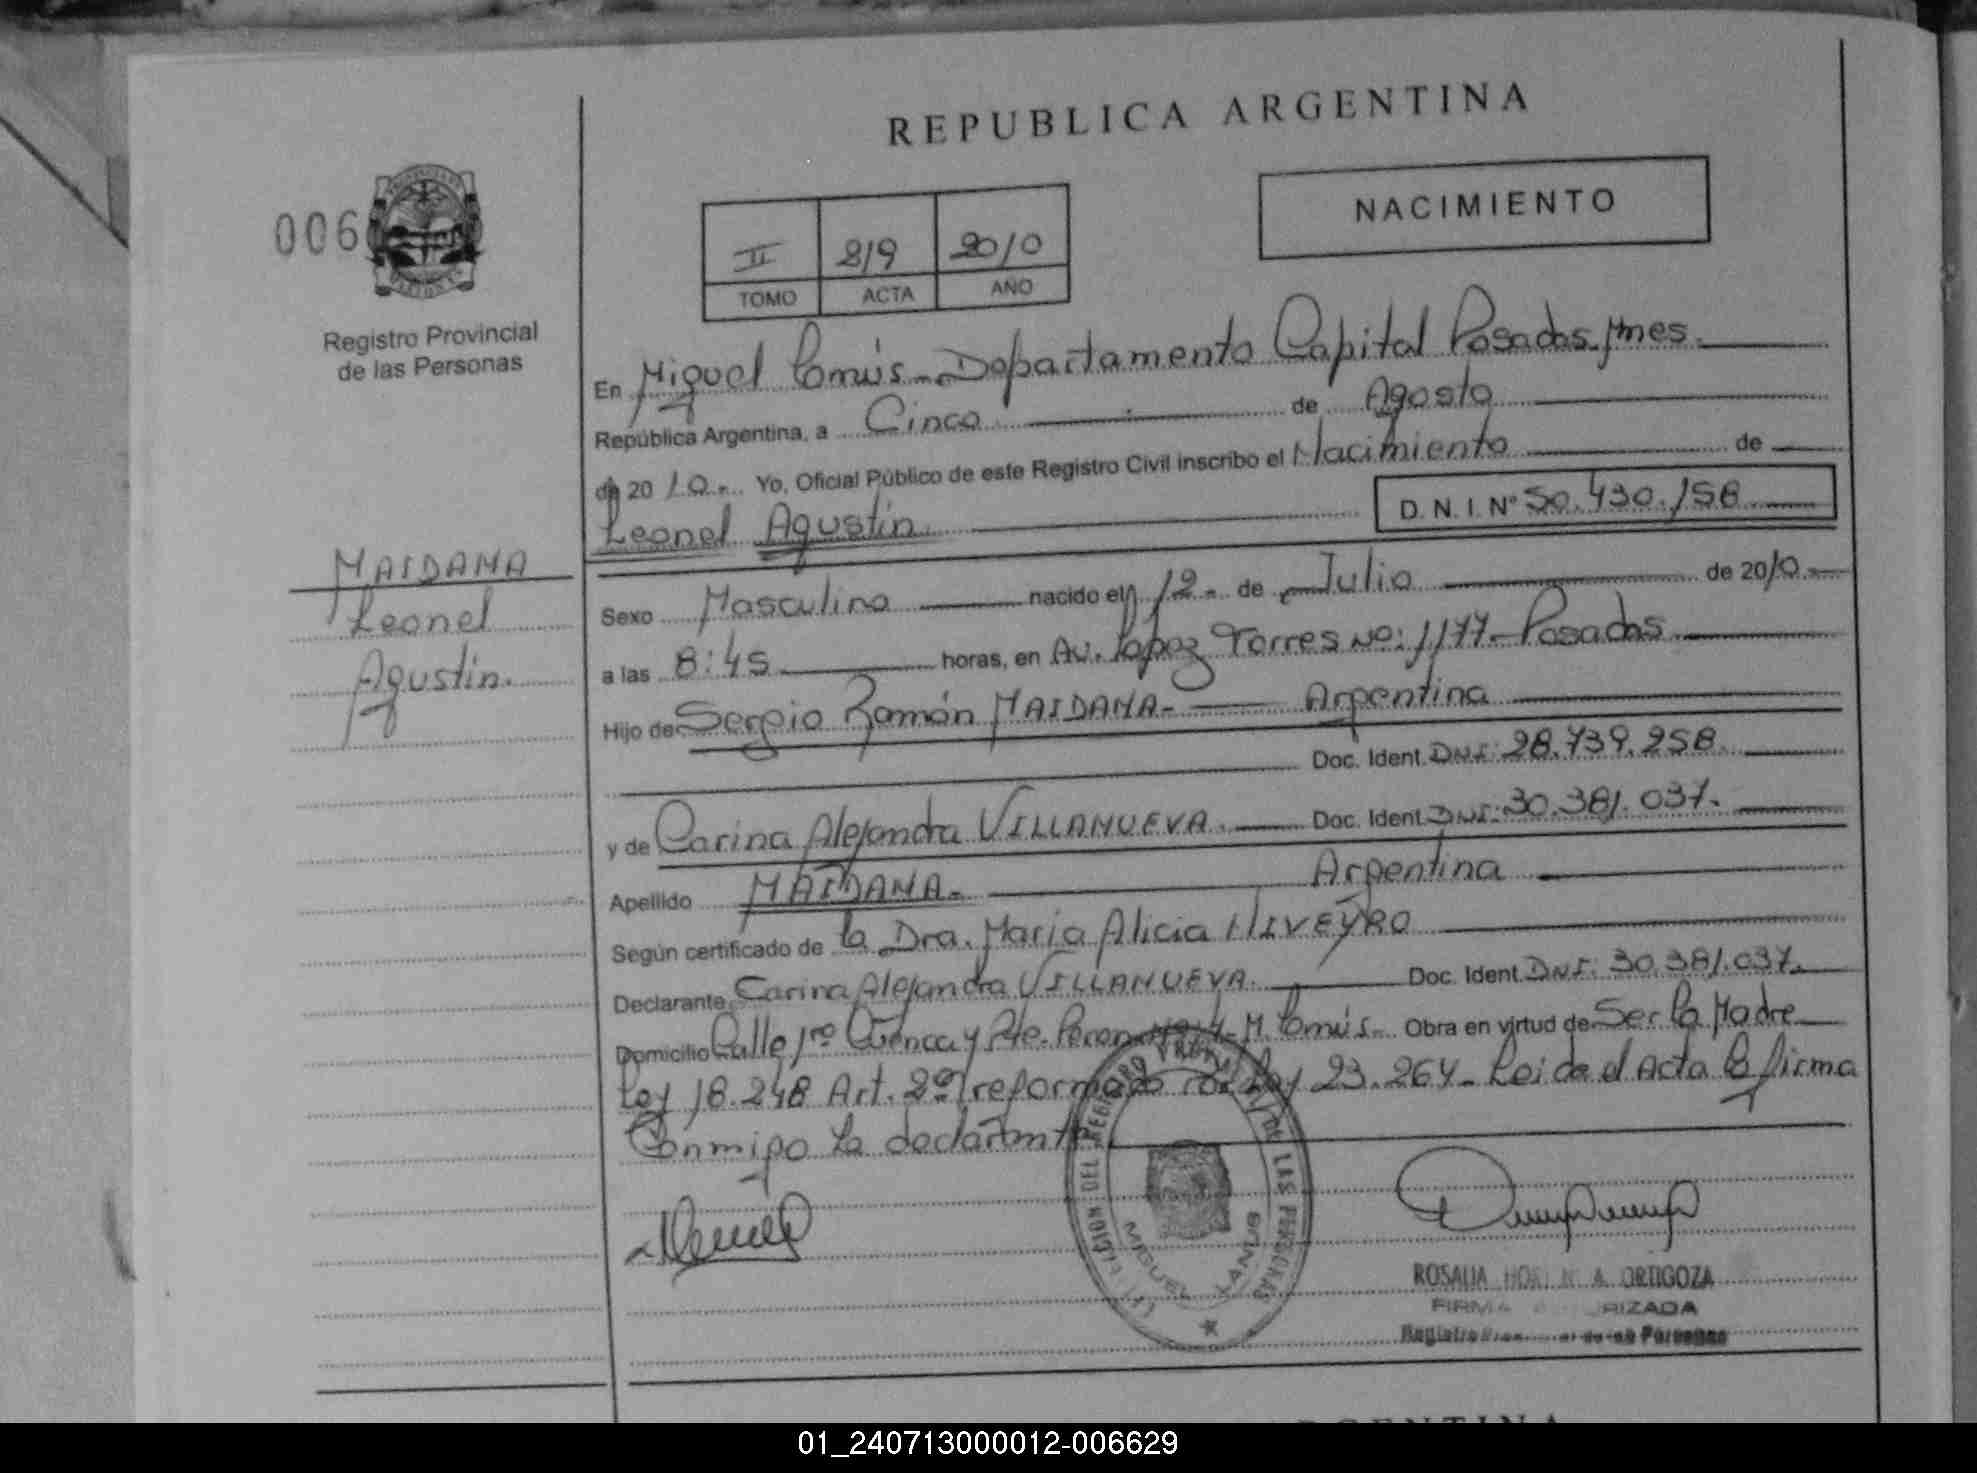 REPUBLICA ARGENTINA
NACIMIENTO
006
II 219 2010
TOMO ACTA AÑO
Registro Provincial
de las Personas
En Miguel Lanús - Departamento Capital Posadas Mnes.
República Argentina, a Cinco de Agosto
de 2010.- Yo, Oficial Público de este Registro Civil inscribo el Nacimiento de
Leonel Agustín D. N. I. Nº 50.430.158
MAIDANA
Leonel
Agustín.
Sexo Masculino nacido el 12.- de Julio de 2010.-
a las 8:45 horas, en Av. López Torres Nº: 1177- Posadas
Hijo de Sergio Ramón MAIDANA- Argentina
Doc. Ident. DNI: 28.739.258.
y de Carina Alejandra VILLANUEVA. Doc. Ident. DNI: 30.381.037.
Apellido MAIDANA- Argentina
Según certificado de la Dra. María Alicia NIVEYRO
Declarante Carina Alejandra VILLANUEVA. Doc. Ident. DNI: 30.381.037.
Domicilio Calle 1ro Cuenca y Pte. Peron Nº 4- M. Lanús- Obra en virtud de Ser la Madre
Ley 18.248 Art. 2º reformado por Ley 23.264- Leida el Acta la firma
Conmigo la declarante
DEL REGISTRO PROVINCIAL DE LAS PERSONAS
MIGUEL LANUS
ROSALIA A. ORTIGOZA
FIRMA AUTORIZADA
Registro Personas
ARGENTINA
01_240713000012-006629